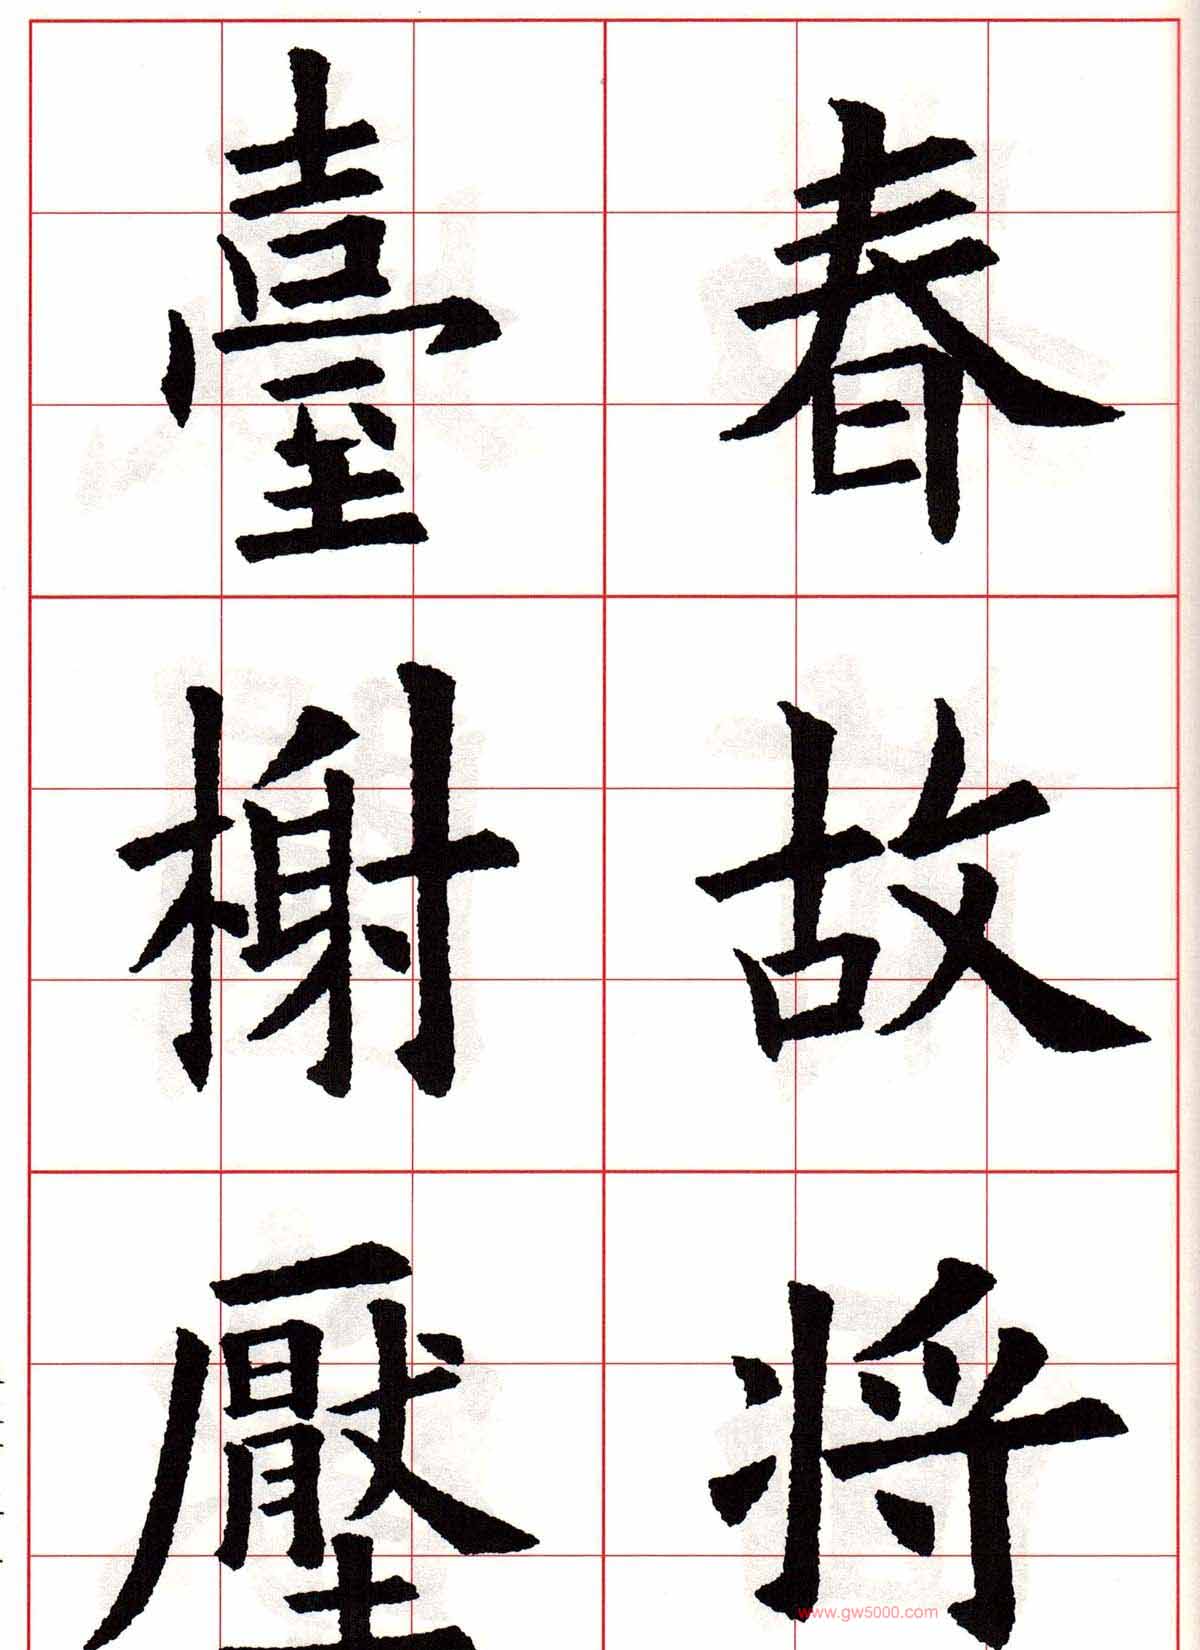 春故将
臺榭壓
www.gw5000.com